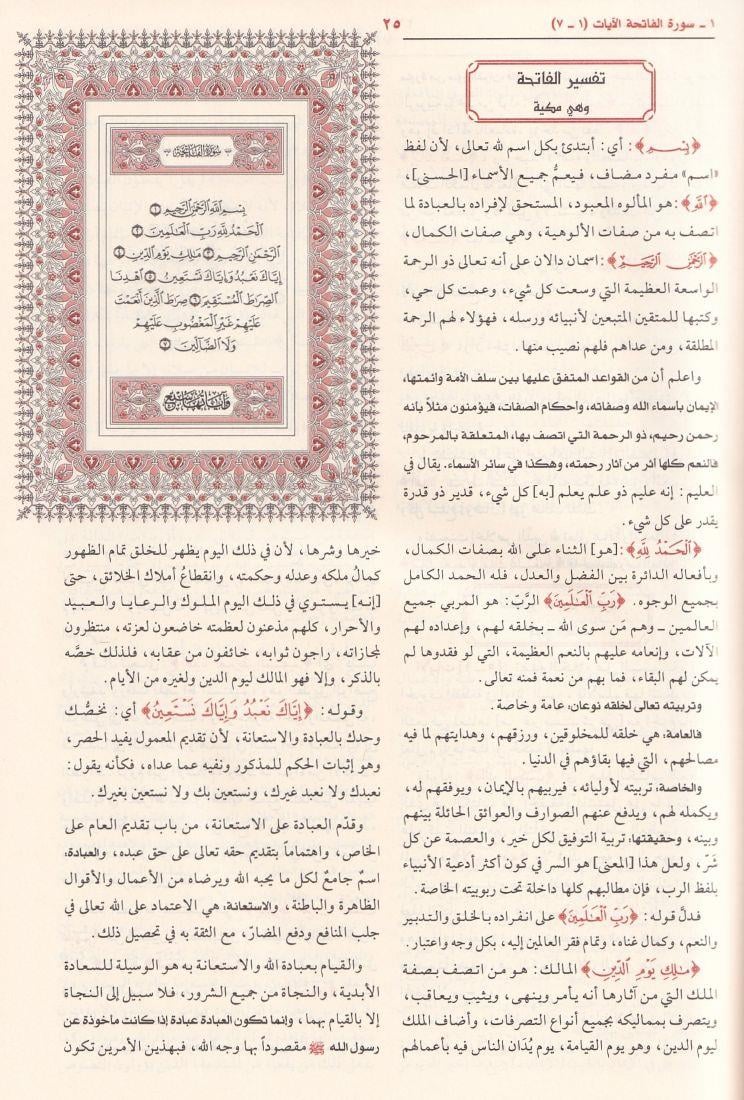 ١ - سورة الفاتحة الآيات (١ - ٧)
٢٥
تفسير الفاتحة
وهي مكية
﴿بِسْمِ﴾: أي: أبتدئ بكل اسم لله تعالى، لأن لفظ
«اسم» مفرد مضاف، فيعمُّ جميع الأسماء [الحسنى]،
﴿اللَّهِ﴾: هو المألوه المعبود، المستحق لإفراده بالعبادة لما
اتصف به من صفات الألوهية، وهي صفات الكمال،
﴿الرَّحْمَٰنِ الرَّحِيمِ﴾: اسمان دالان على أنه تعالى ذو الرحمة
الواسعة العظيمة التي وسعت كل شيء، وعمت كل حي،
وكتبها للمتقين المتبعين لأنبيائه ورسله، فهؤلاء لهم الرحمة
المطلقة، ومن عداهم فلهم نصيب منها.
واعلم أن من القواعد المتفق عليها بين سلف الأمة وأئمتها،
الإيمان بأسماء الله وصفاته، وأحكام الصفات، فيؤمنون مثلاً بأنه
رحمن رحيم، ذو الرحمة التي اتصف بها، المتعلقة بالمرحوم،
فالنعم كلها أثر من آثار رحمته، وهكذا في سائر الأسماء. يقال في
العليم: إنه عليم ذو علم يعلم [به] كل شيء، قدير ذو قدرة
يقدر على كل شيء.
﴿الْحَمْدُ لِلَّهِ﴾: [هو] الثناء على الله بصفات الكمال،
وبأفعاله الدائرة بين الفضل والعدل، فله الحمد الكامل
بجميع الوجوه. ﴿رَبِّ الْعَالَمِينَ﴾ الرَّبّ: هو المربي جميع
العالمين ـ وهم مَن سوى الله ـ بخلقه لهم، وإعداده لهم
الآلات، وإنعامه عليهم بالنعم العظيمة، التي لو فقدوها لم
يمكن لهم البقاء، فما بهم من نعمة فمنه تعالى.
وتربيته تعالى لخلقه نوعان: عامة وخاصة.
فالعامة: هي خلقه للمخلوقين، ورزقهم، وهدايتهم لما فيه
مصالحهم، التي فيها بقاؤهم في الدنيا.
والخاصة: تربيته لأوليائه، فيربيهم بالإيمان، ويوفقهم له،
ويكمله لهم، ويدفع عنهم الصوارف والعوائق الحائلة بينهم
وبينه، وحقيقتها: تربية التوفيق لكل خير، والعصمة عن كل
شَرّ، ولعل هذا [المعنى] هو السر في كون أكثر أدعية الأنبياء
بلفظ الرب، فإن مطالبهم كلها داخلة تحت ربوبيته الخاصة.
فدلَّ قوله: ﴿رَبِّ الْعَالَمِينَ﴾ على انفراده بالخلق والتدبير
والنعم، وكمال غناه، وتمام فقر العالمين إليه، بكل وجه واعتبار.
﴿مَالِكِ يَوْمِ الدِّينِ﴾ المالك: هو من اتصف بصفة
الملك التي من آثارها أنه يأمر وينهى، ويثيب ويعاقب،
ويتصرف بمماليكه بجميع أنواع التصرفات، وأضاف الملك
ليوم الدين، وهو يوم القيامة، يوم يُدَان الناس فيه بأعمالهم
سُورَةُ الفَاتِحَة
بِسْمِ اللَّهِ الرَّحْمَٰنِ الرَّحِيمِ ١
الْحَمْدُ لِلَّهِ رَبِّ الْعَالَمِينَ ٢
الرَّحْمَٰنِ الرَّحِيمِ ٣ مَالِكِ يَوْمِ الدِّينِ ٤
إِيَّاكَ نَعْبُدُ وَإِيَّاكَ نَسْتَعِينُ ٥ اهْدِنَا
الصِّرَاطَ الْمُسْتَقِيمَ ٦ صِرَاطَ الَّذِينَ أَنْعَمْتَ
عَلَيْهِمْ غَيْرِ الْمَغْضُوبِ عَلَيْهِمْ
وَلَا الضَّالِّينَ ٧
وَآيَاتُهَا سَبْعٌ
خيرها وشرها، لأن في ذلك اليوم يظهر للخلق تمام الظهور
كمالُ ملكه وعدله وحكمته، وانقطاعُ أملاك الخلائق، حتى
[إنه] يستوي في ذلك اليوم الملوك والرعايا والعبيد
والأحرار، كلهم مذعنون لعظمته خاضعون لعزته، منتظرون
لمجازاته، راجون ثوابه، خائفون من عقابه، فلذلك خصَّه
بالذكر، وإلا فهو المالك ليوم الدين ولغيره من الأيام.
وقوله: ﴿إِيَّاكَ نَعْبُدُ وَإِيَّاكَ نَسْتَعِينُ﴾ أي: نخصُّك
وحدك بالعبادة والاستعانة، لأن تقديم المعمول يفيد الحصر،
وهو إثبات الحكم للمذكور ونفيه عما عداه، فكأنه يقول:
نعبدك ولا نعبد غيرك، ونستعين بك ولا نستعين بغيرك.
وقدّم العبادة على الاستعانة، من باب تقديم العام على
الخاص، واهتماماً بتقديم حقه تعالى على حق عبده، والعبادة:
اسمٌ جامعٌ لكل ما يحبه الله ويرضاه من الأعمال والأقوال
الظاهرة والباطنة، والاستعانة: هي الاعتماد على الله تعالى في
جلب المنافع ودفع المضارّ، مع الثقة به في تحصيل ذلك.
والقيام بعبادة الله والاستعانة به هو الوسيلة للسعادة
الأبدية، والنجاة من جميع الشرور، فلا سبيل إلى النجاة
إلا بالقيام بهما، وإنما تكون العبادة عبادة إذا كانت مأخوذة عن
رسول الله ﷺ مقصوداً بها وجه الله، فبهذين الأمرين تكون